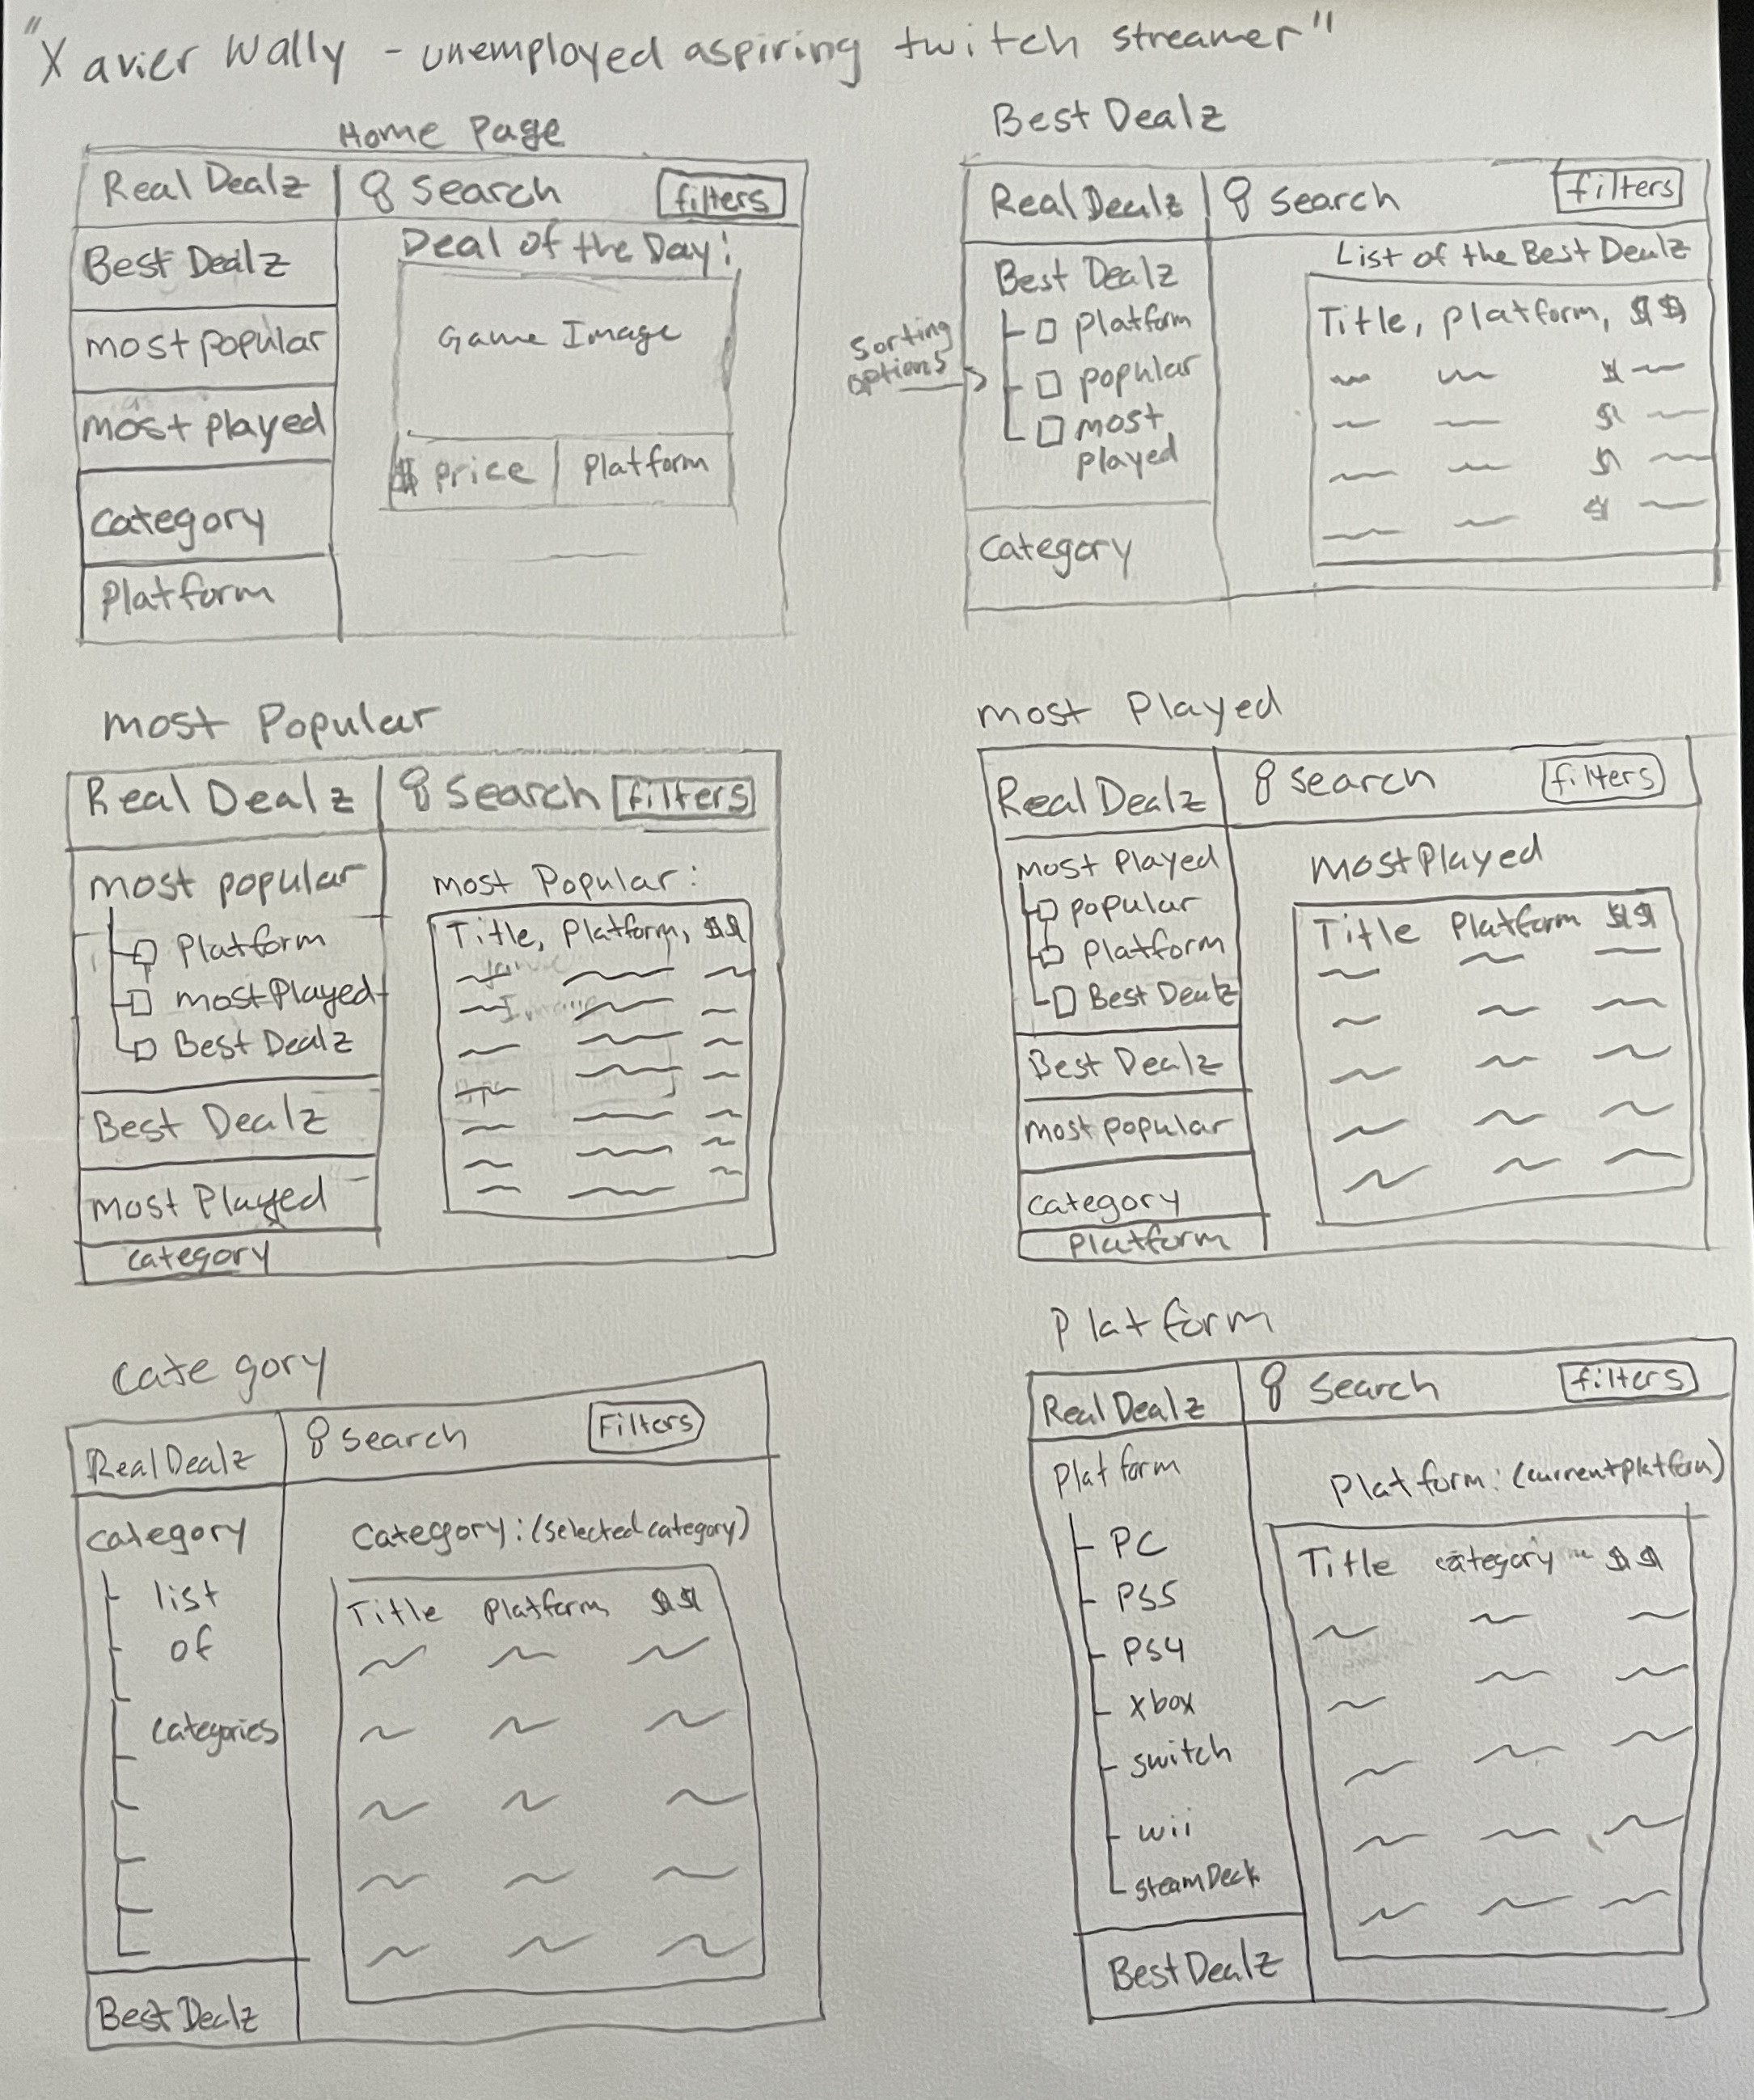 "Xavier Wally - unemployed aspiring twitch streamer"
Home Page
Real Dealz
Search
filters
Best Dealz
most popular
most played
category
Platform
Deal of the Day!
Game Image
$ price
Platform
Best Dealz
Real Dealz
Search
filters
Sorting
options
Best Dealz
Platform
popular
most
played
category
List of the Best Dealz
Title, platform, $$
$
$
$
$
most Popular
Real Dealz
Search
filters
most popular
Platform
most Played
Best Dealz
Best Dealz
most Played
category
most Popular:
Title, Platform, $$
most Played
Real Dealz
Search
filters
most Played
popular
Platform
Best Dealz
Best Dealz
most popular
category
Platform
most Played
Title Platform $$
category
Real Dealz
Search
Filters
category
list
of
categories
Best Dealz
Category: (selected category)
Title Platform $$
Platform
Real Dealz
Search
filters
Platform
PC
PS5
PS4
xbox
switch
wii
steam Deck
Best Dealz
Platform: (current platform)
Title category $$